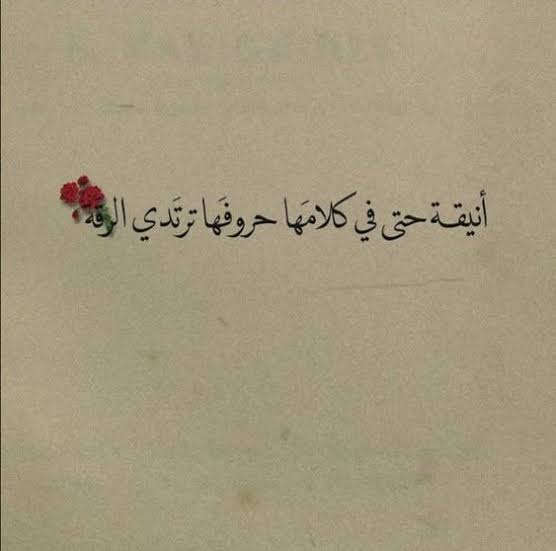 أنيقة حتى في كلامَها حروفَها ترتَدي الرقة